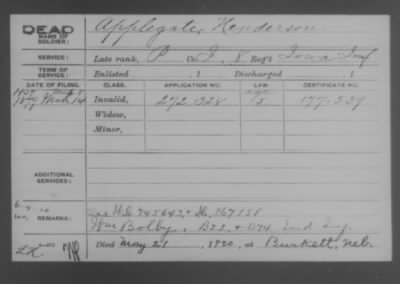 DEAD
NAME OF SOLDIER: Applegate, Henderson
SERVICE: Late rank, P Co. I, 8 Reg't Iowa Inf
TERM OF SERVICE: Enlisted , 1 Discharged , 1
DATE OF FILING. CLASS. APPLICATION NO. LAW. CERTIFICATE NO.
Invalid, 272.028 177-539
Widow,
Minor,
ADDITIONAL SERVICES:
REMARKS: 745643 + 767158
Wm Bolby, B22 + B74 Ind Inf
Died May 21, 1920, at Burkett, Neb.